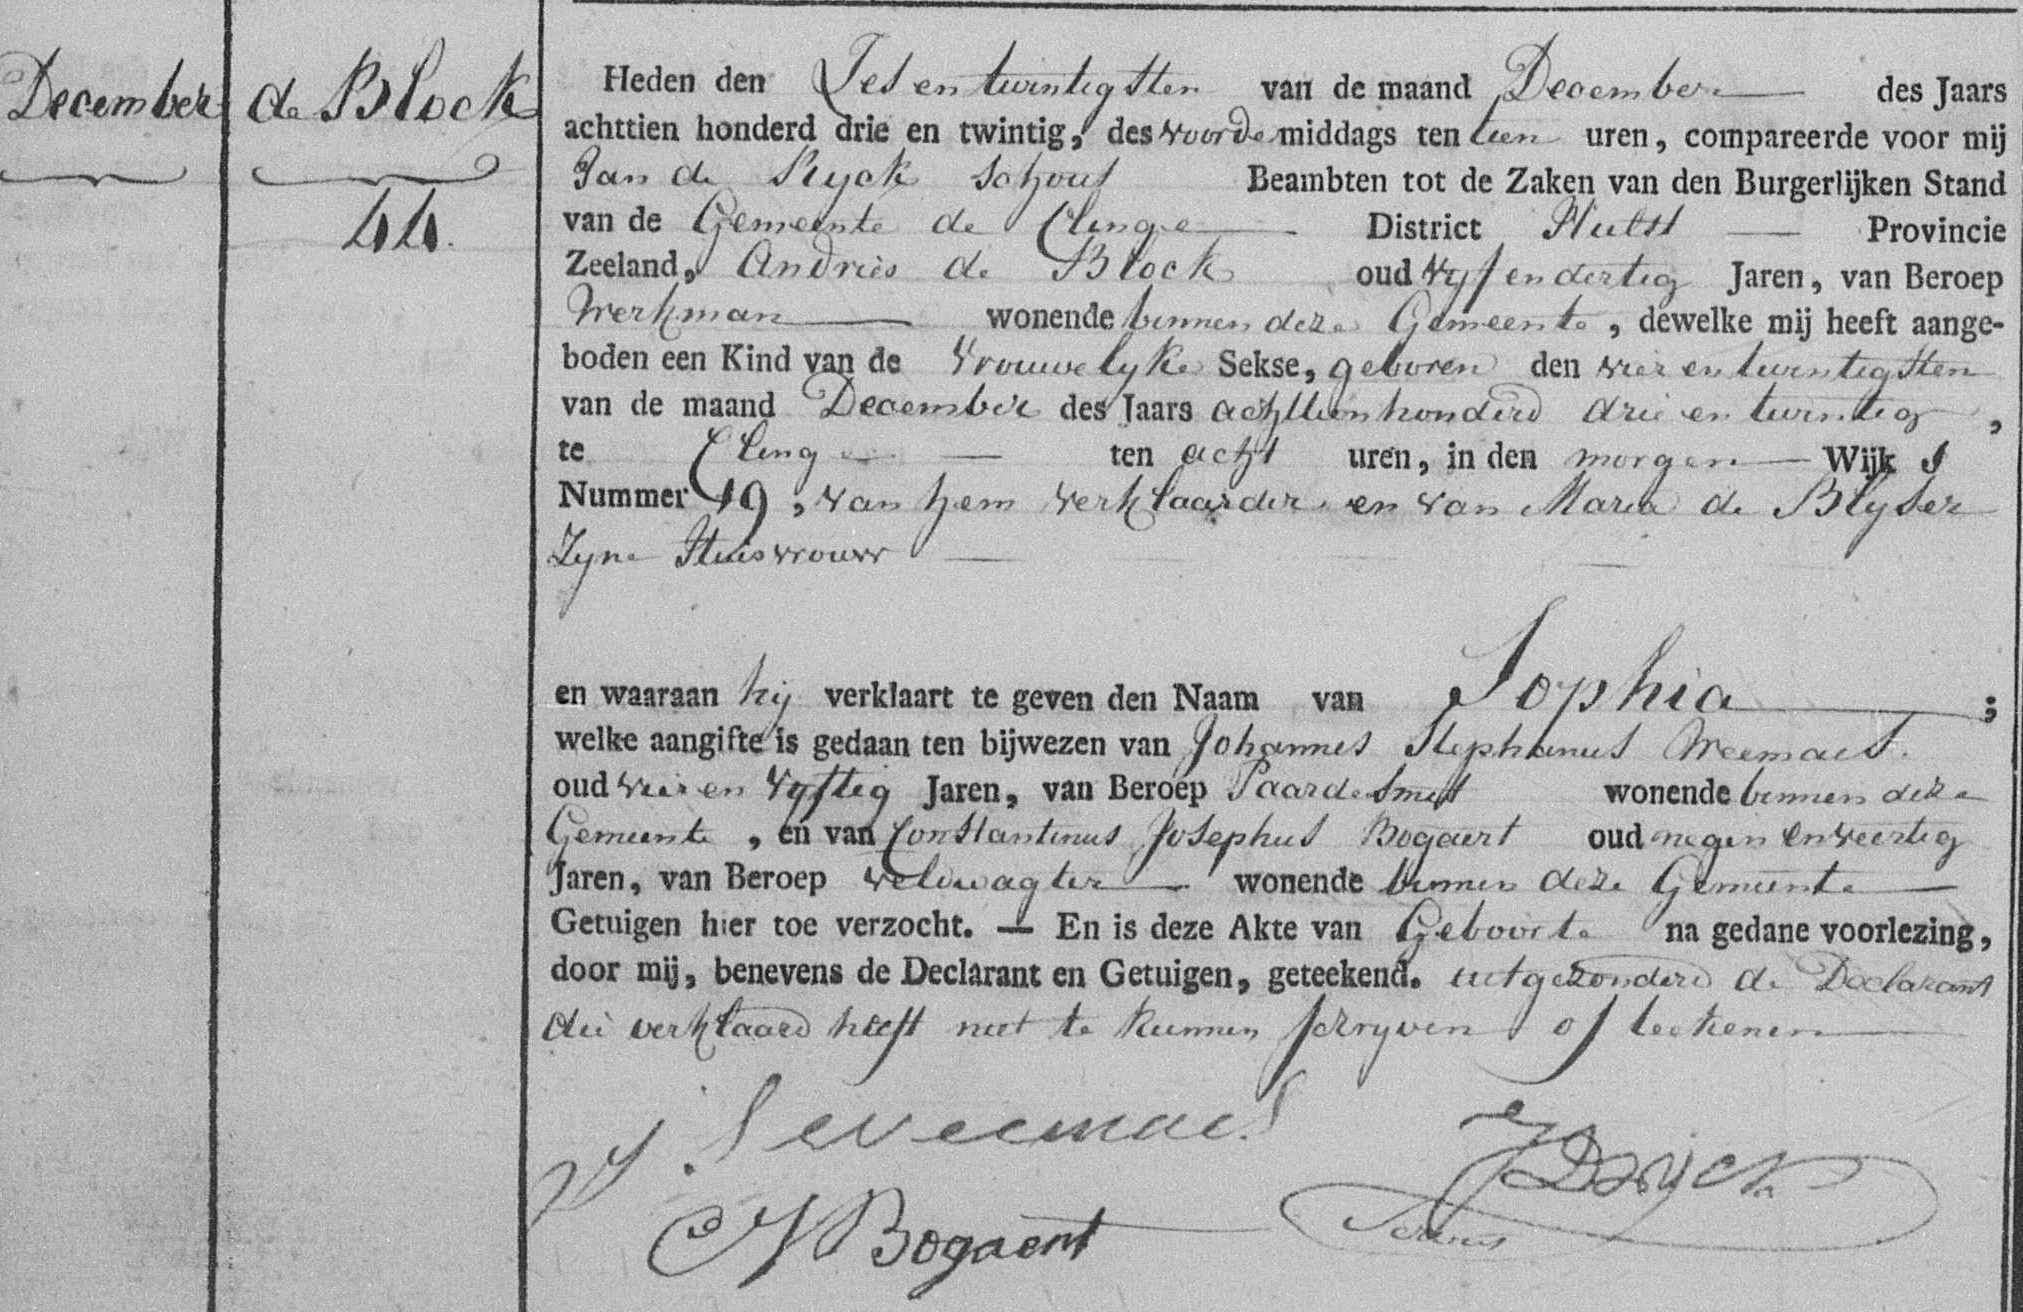 December
de Block
44.
Heden den Ses en twintigsten van de maand December des Jaars
achttien honderd drie en twintig, des voorde middags ten tien uren, compareerde voor mij
Jan de Ryck schout Beambten tot de Zaken van den Burgerlijken Stand
van de Gemeente de Clinge District Hulst Provincie
Zeeland, Andries de Block oud vyf en dertig Jaren, van Beroep
Werkman wonende binnen deze Gemeente, dewelke mij heeft aange-
boden een Kind van de Vrouwelyke Sekse, geboren den vier en twintigsten
van de maand December des Jaars achttienhonderd drie en twintig,
te Clinge ten acht uren, in den morgen Wijk
Nummer 19, van hem verklaarder en van Maria de Blyser
Zyne Huisvrouw
en waaraan hij verklaart te geven den Naam van Sophia;
welke aangifte is gedaan ten bijwezen van Johannes Stephanus Weemaes.
oud vier en vyftig Jaren, van Beroep Paardesmit wonende binnen deze
Gemeente, en van Constantinus Josephus Bogaert oud negen en veertig
Jaren, van Beroep veldwagter wonende binnen deze Gemeente
Getuigen hier toe verzocht. — En is deze Akte van Geboorte na gedane voorlezing,
door mij, benevens de Declarant en Getuigen, geteekend. uitgezonderd de Declarant
die verklaard heeft niet te kunnen schryven of teekenen
J S Weemaes
JDRyck
CJ Bogaert